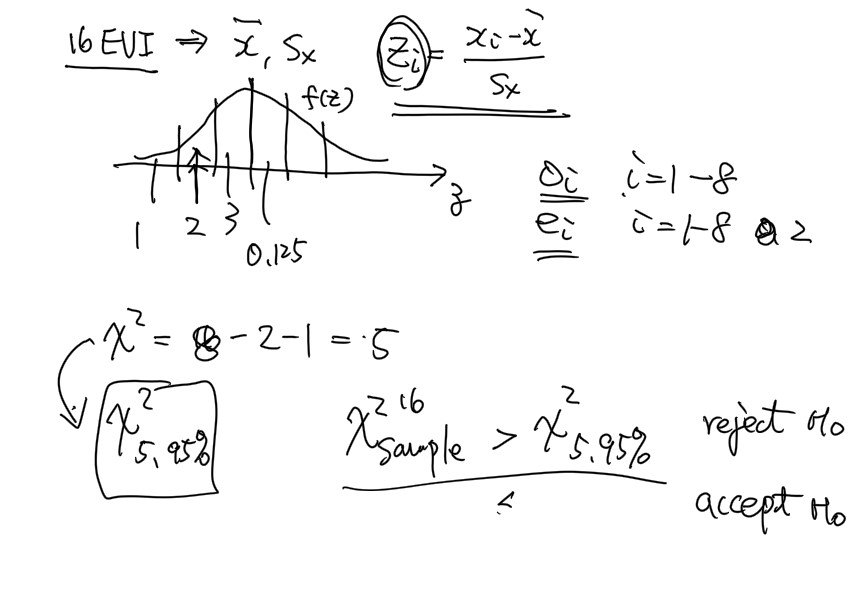 16 EVI ⇒ x̄, Sx    Zi = (xi - x̄) / Sx
f(z)
z
1 2 3
0.125
Oi i=1-8
ei i=1-8 2
χ² = 8 - 2 - 1 = 5
χ² 5,95%
χ² 16 sample > χ² 5,95% reject H₀
≤ accept H₀